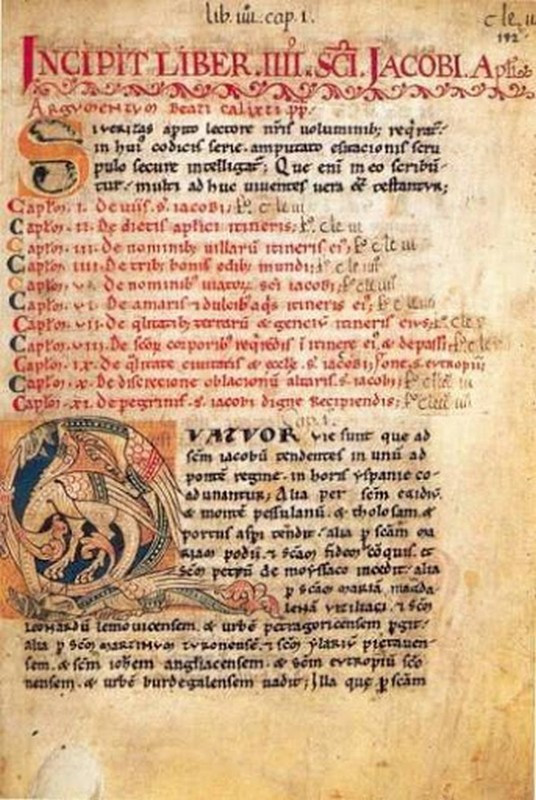 lib. iiii. cap. i.
192
INCIPIT LIBER. IIII. SCI. JACOBI. Apłi
Argumentum beati calixti pp.
Si veritas apto lectore nris voluminib;
in huis codicis serie. amputato esitacionis scru
pulo secure intelligat; Que eni in eo scribu
tur. multi ad huc viventes vera ee testantur;
Capłm. I. De viis. s. iacobi;
Capłm. II. De dietis apłici itineris;
Capłm. III. De nominib; villaru itineris ei;
Capłm. IIII. De trib; bonis edib; mundi;
Capłm. V. De nominib; viator sci iacobi;
Capłm. VI. De amaris & dulcib; aqs itineris ei;
Capłm. VII. De qlitatib; terraru & genciu itineris eius;
Capłm. VIII. De scor corporib; reqrendis i itinere ei. & de passi
Capłm. IX. De qlitate civitatis & eccle. s. iacobi;
Capłm. X. De discrecione oblacionu altaris. s. iacobi;
Capłm. XI. De pegrinis. s. iacobi digne recipiendis;
QUATUOR vie sunt que ad
scm iacobu tendentes in unu ad
ponte regine. in horis yspanie co-
adunantur; Alia per scm egidiu.
& monte pessulanu. & tholosam. &
portus aspi tendit. alia p scam ma
riam podii. & scam fidem de coquis. et
scm petru de moyssaco incedit. alia
p scam maria magda
lena viziliaci. & scm
leonardu lemovicensem. & urbe petragoricensem pgit.
alia p scm martinum turonense. & scm ylariu pictaven-
sem. & scm iohem angliacensem. & scm eutropiu scto
nensem. & urbe burdegalensem vadit; Illa que p scam